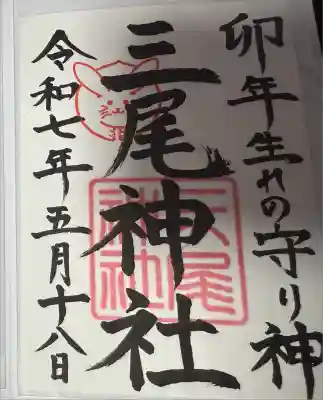 卯年生れの守り神
三尾神社
三尾神社
令和七年五月十八日